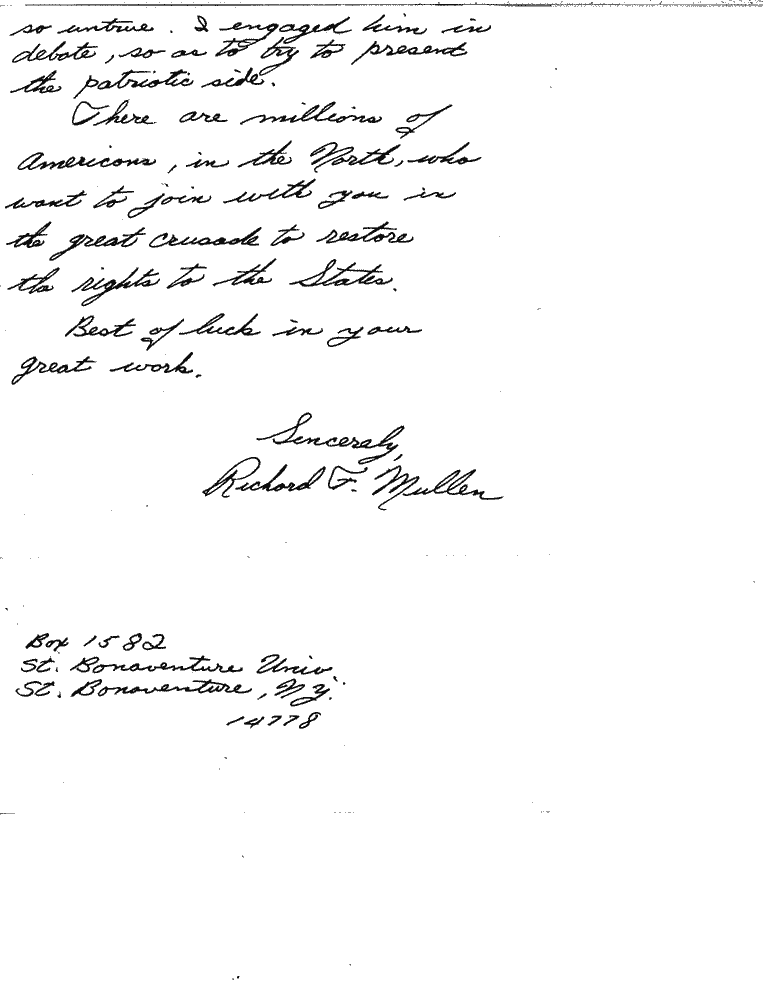 so untrue. I engaged him in
debate, so as to try to present
the patriotic side.
There are millions of
Americans, in the North, who
want to join with you in
the great crusade to restore
the rights to the States.
Best of luck in your
great work.
Sincerely,
Richard F. Mullen
Box 1582
St. Bonaventure Univ.
St. Bonaventure, N.Y.
14778